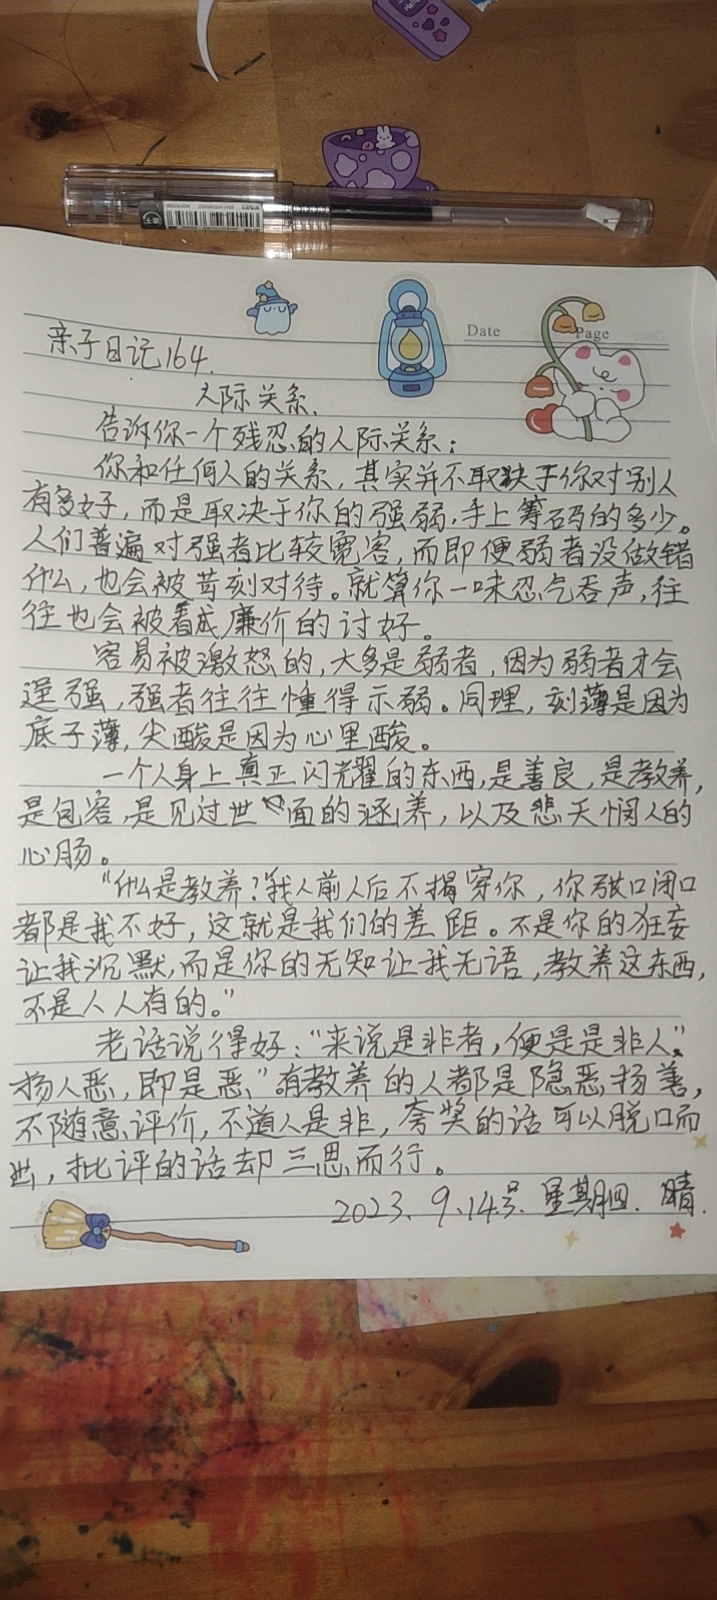 Date
Page
亲子日记164.
人际关系.
告诉你一个残忍的人际关系：
你和任何人的关系，其实并不取决于你对别人
有多好，而是取决于你的强弱，手上筹码的多少。
人们普遍对强者比较宽容，而即便弱者没做错
什么，也会被苛刻对待。就算你一味忍气吞声，往
往也会被看成廉价的讨好。
容易被激怒的，大多是弱者，因为弱者才会
逞强，强者往往懂得示弱。同理，刻薄是因为
底子薄，尖酸是因为心里酸。
一个人身上真正闪光耀的东西，是善良，是教养，
是包容，是见过世面的涵养，以及悲天悯人的
心肠。
“什么是教养？我人前人后不揭穿你，你张口闭口
都是我不好，这就是我们的差距。不是你的狂妄
让我沉默，而是你的无知让我无语，教养这东西，
不是人人有的。”
老话说得好：“来说是非者，便是是非人”，
扬人恶，即是恶”。有教养的人都是隐恶扬善，
不随意评价，不道人是非，夸奖的话可以脱口而
出，批评的话却三思而行。
2023、9.14号. 星期四. 晴.